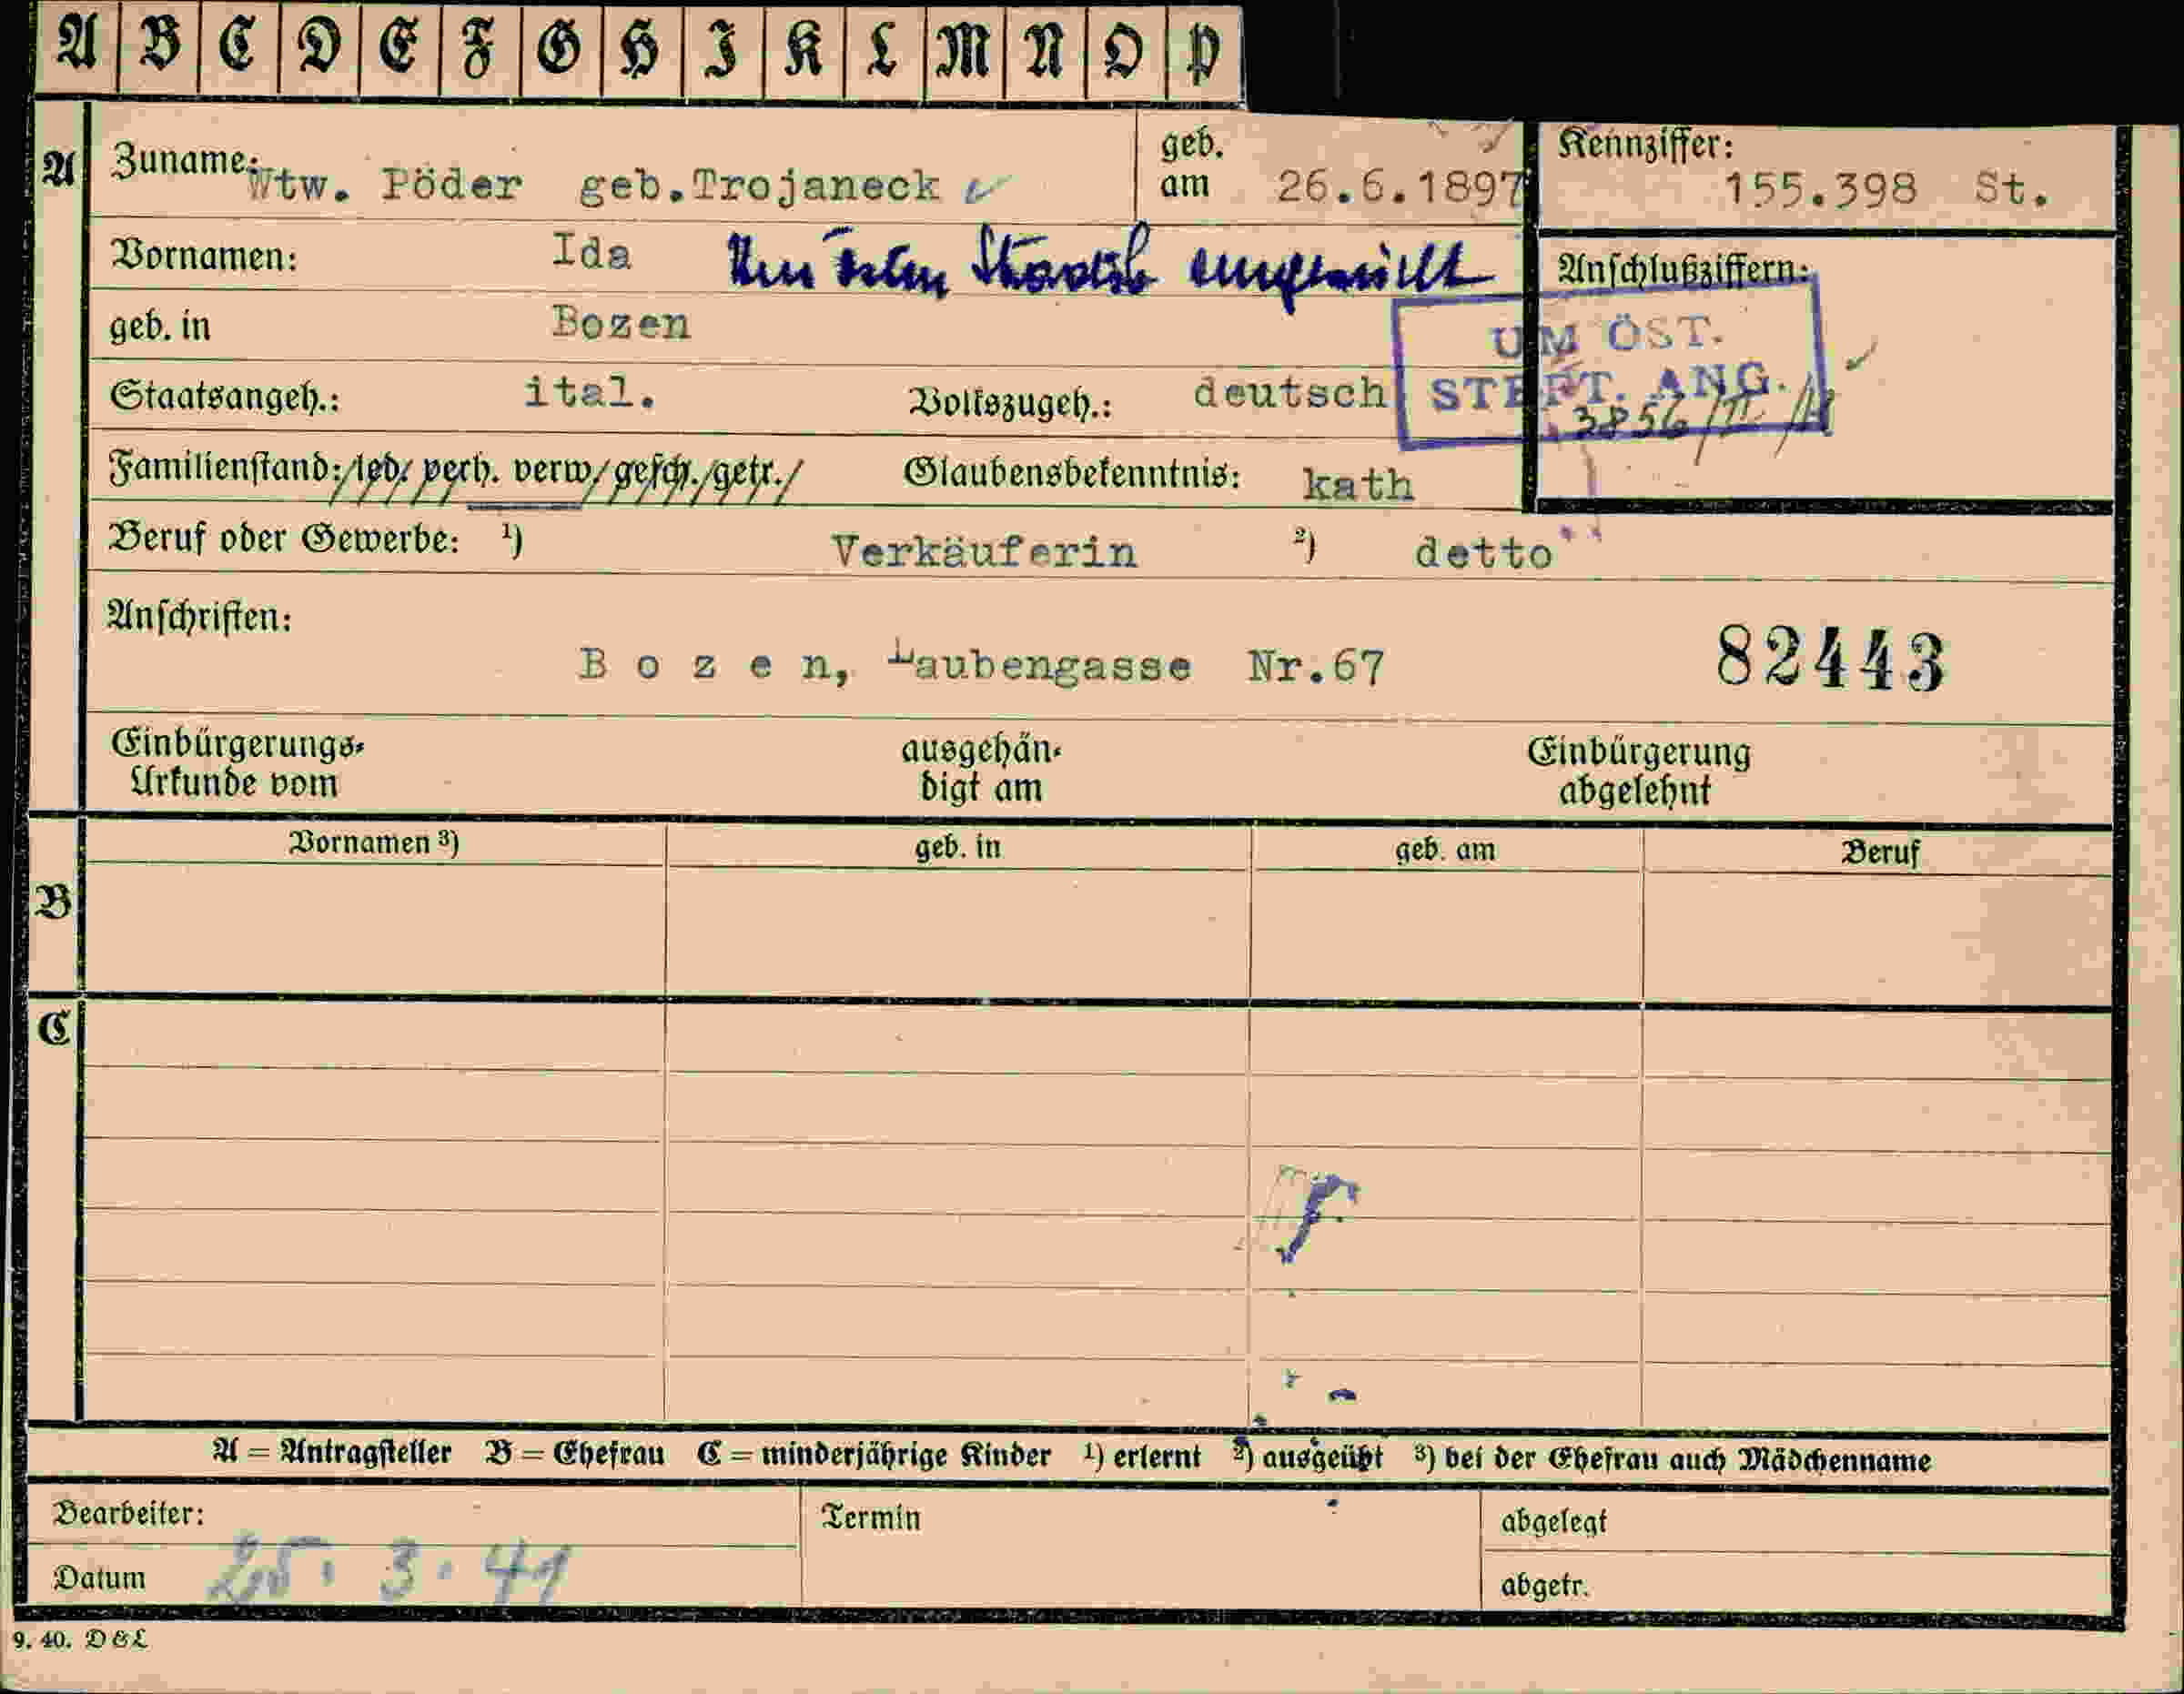 A B C D E F G H I K L M N O P
A Zuname: Wtw. Pöder geb.Trojaneck geb. am 26.6.1897 Kennziffer: 155.398 St.
Vornamen: Ida Um österr. Staatsb Anschlußziffern:
geb. in Bozen UM ÖST.
Staatsangeh.: ital. Volkszugeh.: deutsch STFFT. ANG.
3856/II/
Familienstand: led. verh. verw. gesch. getr. Glaubensbekenntnis: kath
Beruf oder Gewerbe: ¹) Verkäuferin ²) detto
Anschriften:
Bozen, Laubengasse Nr.67 82443
Einbürgerungs- ausgehän- Einbürgerung
Urkunde vom digt am abgelehnt
Vornamen ³) geb. in geb. am Beruf
B
C
A = Antragsteller B = Ehefrau C = minderjährige Kinder ¹) erlernt ²) ausgeübt ³) bei der Ehefrau auch Mädchenname
Bearbeiter: Termin abgelegt
Datum 25. 3. 41 abgetr.
9. 40. D & L